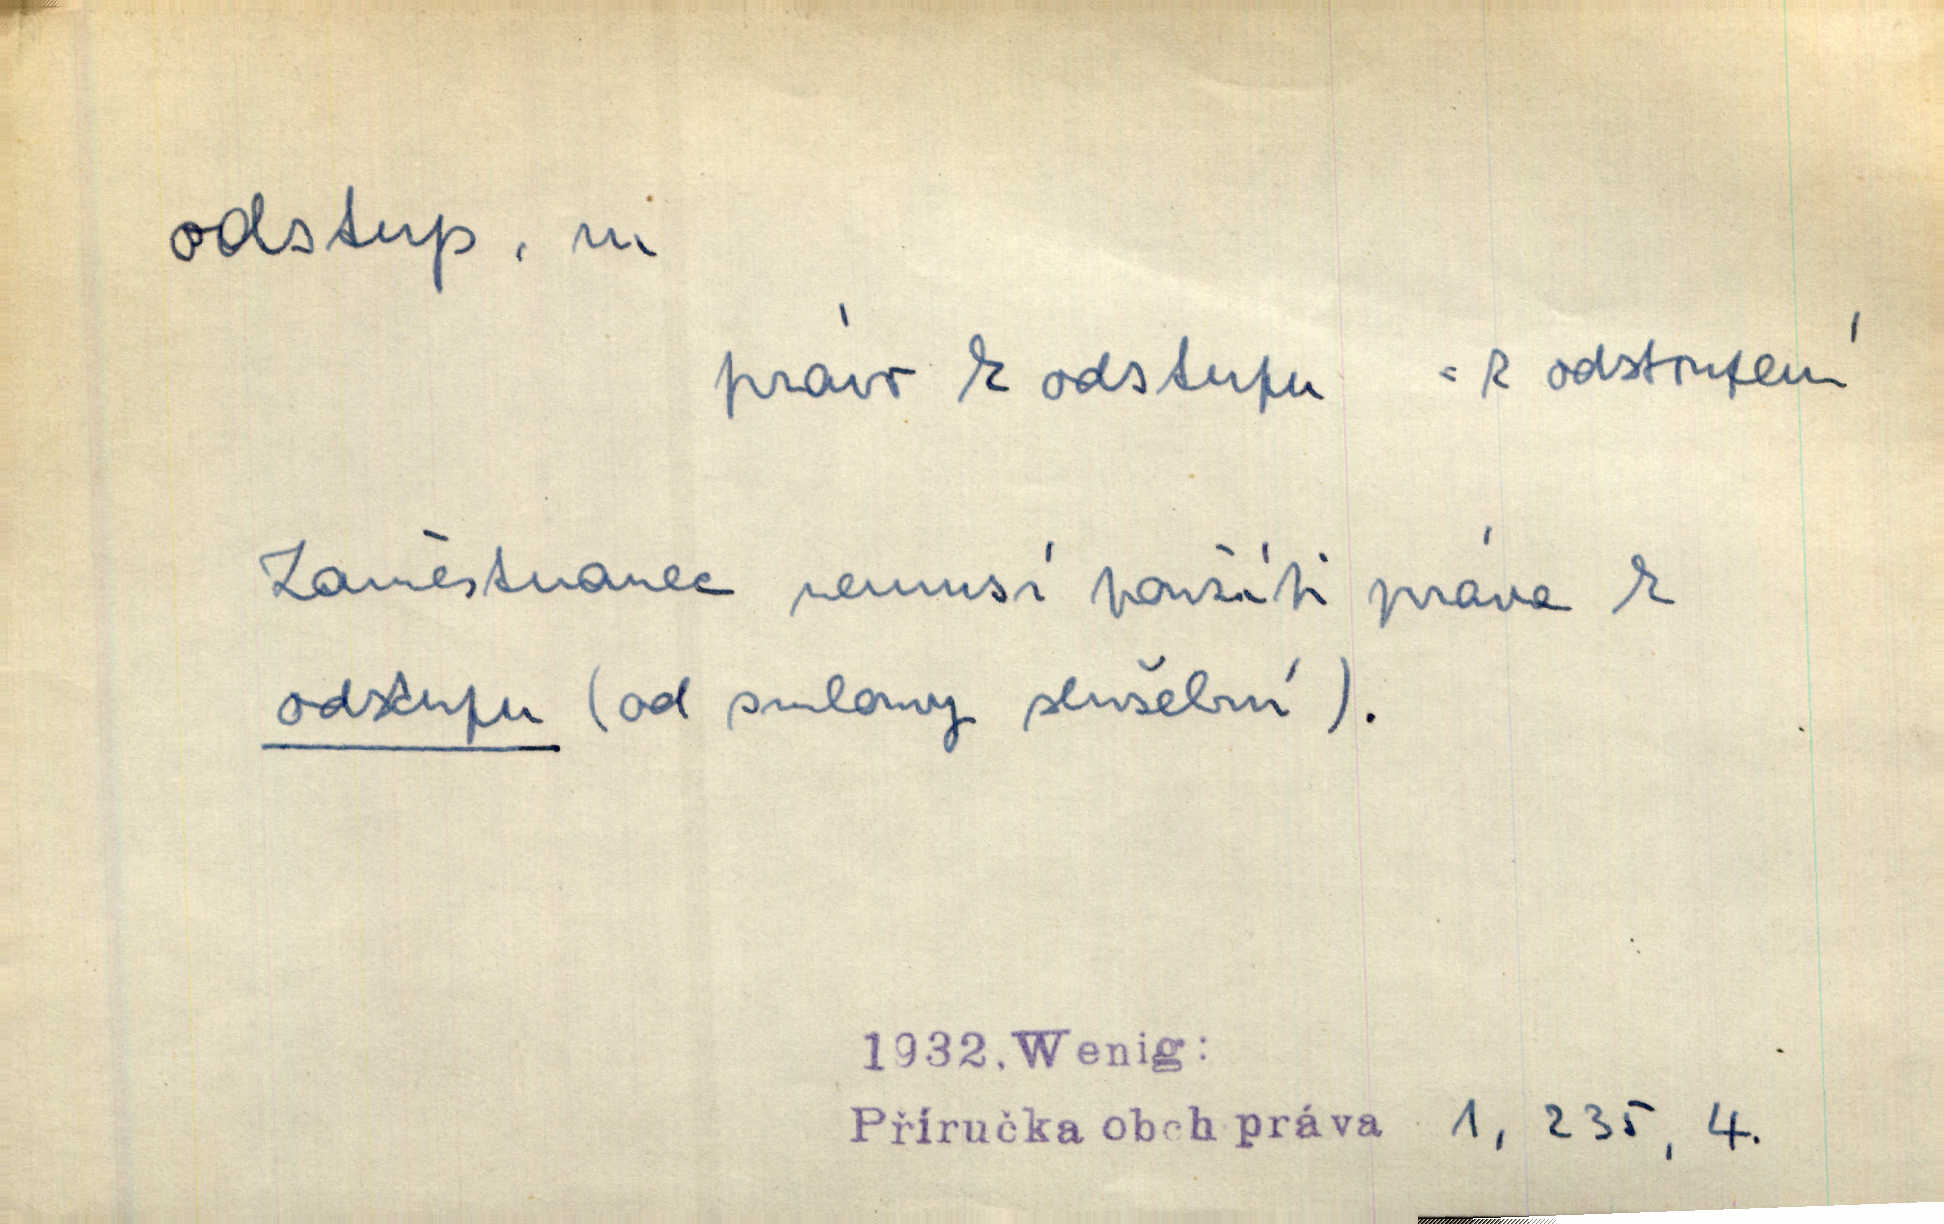 odstup, m
právo k odstupu = k odstoupení
Zaměstnanec nemusí použíti práva k
odstupu (od smlouvy služební).
1932. Wenig:
Příručka obch práva 1, 235, 4.